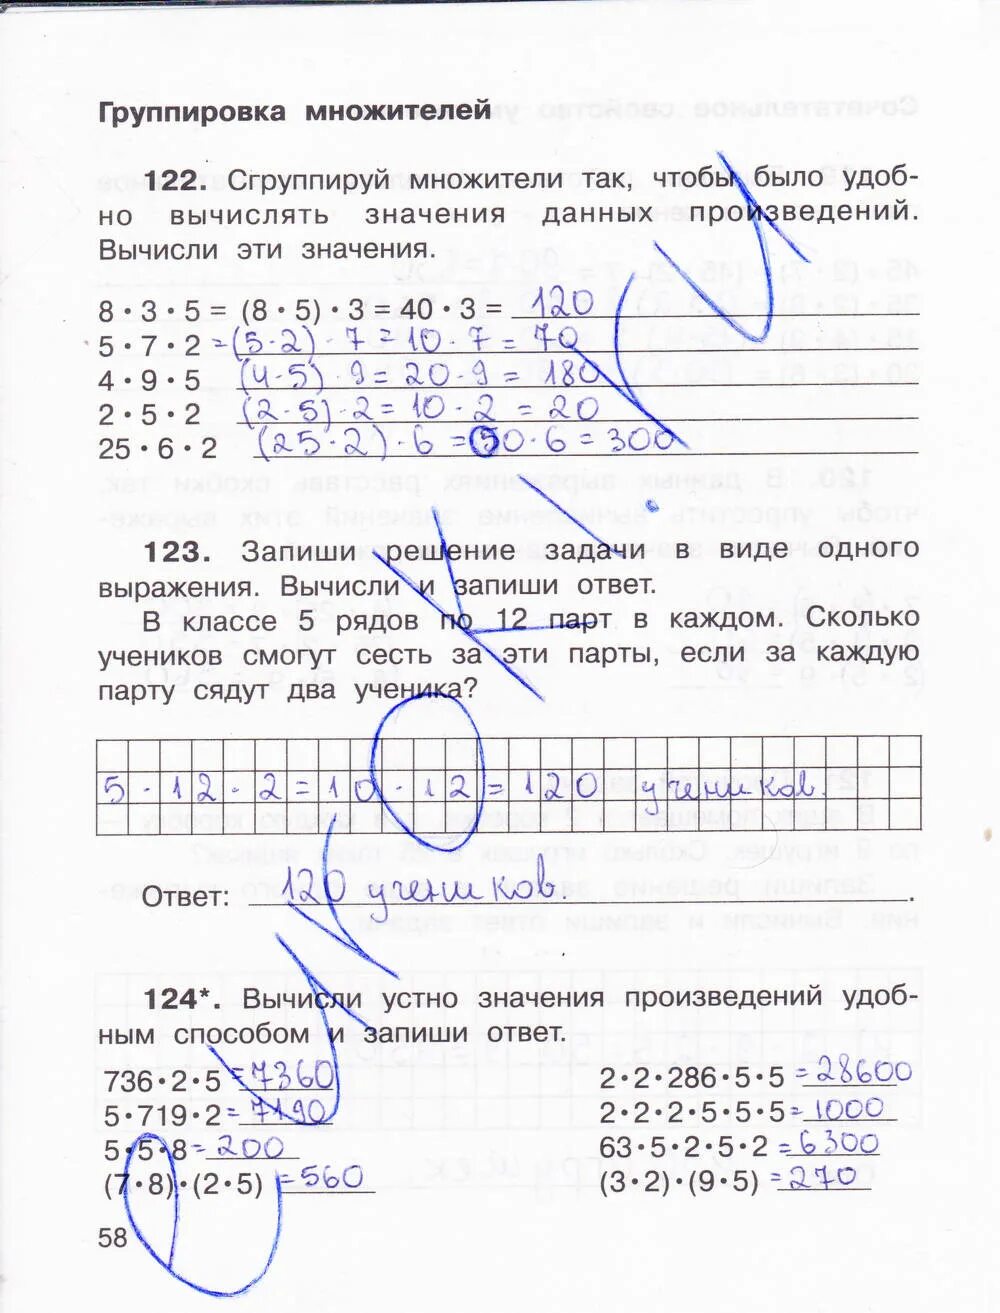 Группировка множителей
122. Сгруппируй множители так, чтобы было удоб-
но вычислять значения данных произведений.
Вычисли эти значения.
8 · 3 · 5 = (8 · 5) · 3 = 40 · 3 = 120
5 · 7 · 2 = (5 · 2) · 7 = 10 · 7 = 70
4 · 9 · 5 (4 · 5) 9 = 20 · 9 = 180
2 · 5 · 2 (2 · 5) · 2 = 10 · 2 = 20
25 · 6 · 2 (25 · 2) · 6 = 50 · 6 = 300
123. Запиши решение задачи в виде одного
выражения. Вычисли и запиши ответ.
В классе 5 рядов по 12 парт в каждом. Сколько
учеников смогут сесть за эти парты, если за каждую
парту сядут два ученика?
5 · 12 · 2 = 10 · 12 = 120 учеников.
Ответ: 120 учеников.
124*. Вычисли устно значения произведений удоб-
ным способом и запиши ответ.
736 · 2 · 5 = 7360
5 · 719 · 2 = 7190
5 · 5 · 8 = 200
(7 · 8) · (2 · 5) = 560
2 · 2 · 286 · 5 · 5 = 28600
2 · 2 · 2 · 5 · 5 · 5 = 1000
63 · 5 · 2 · 5 · 2 = 6300
(3 · 2) · (9 · 5) = 270
58